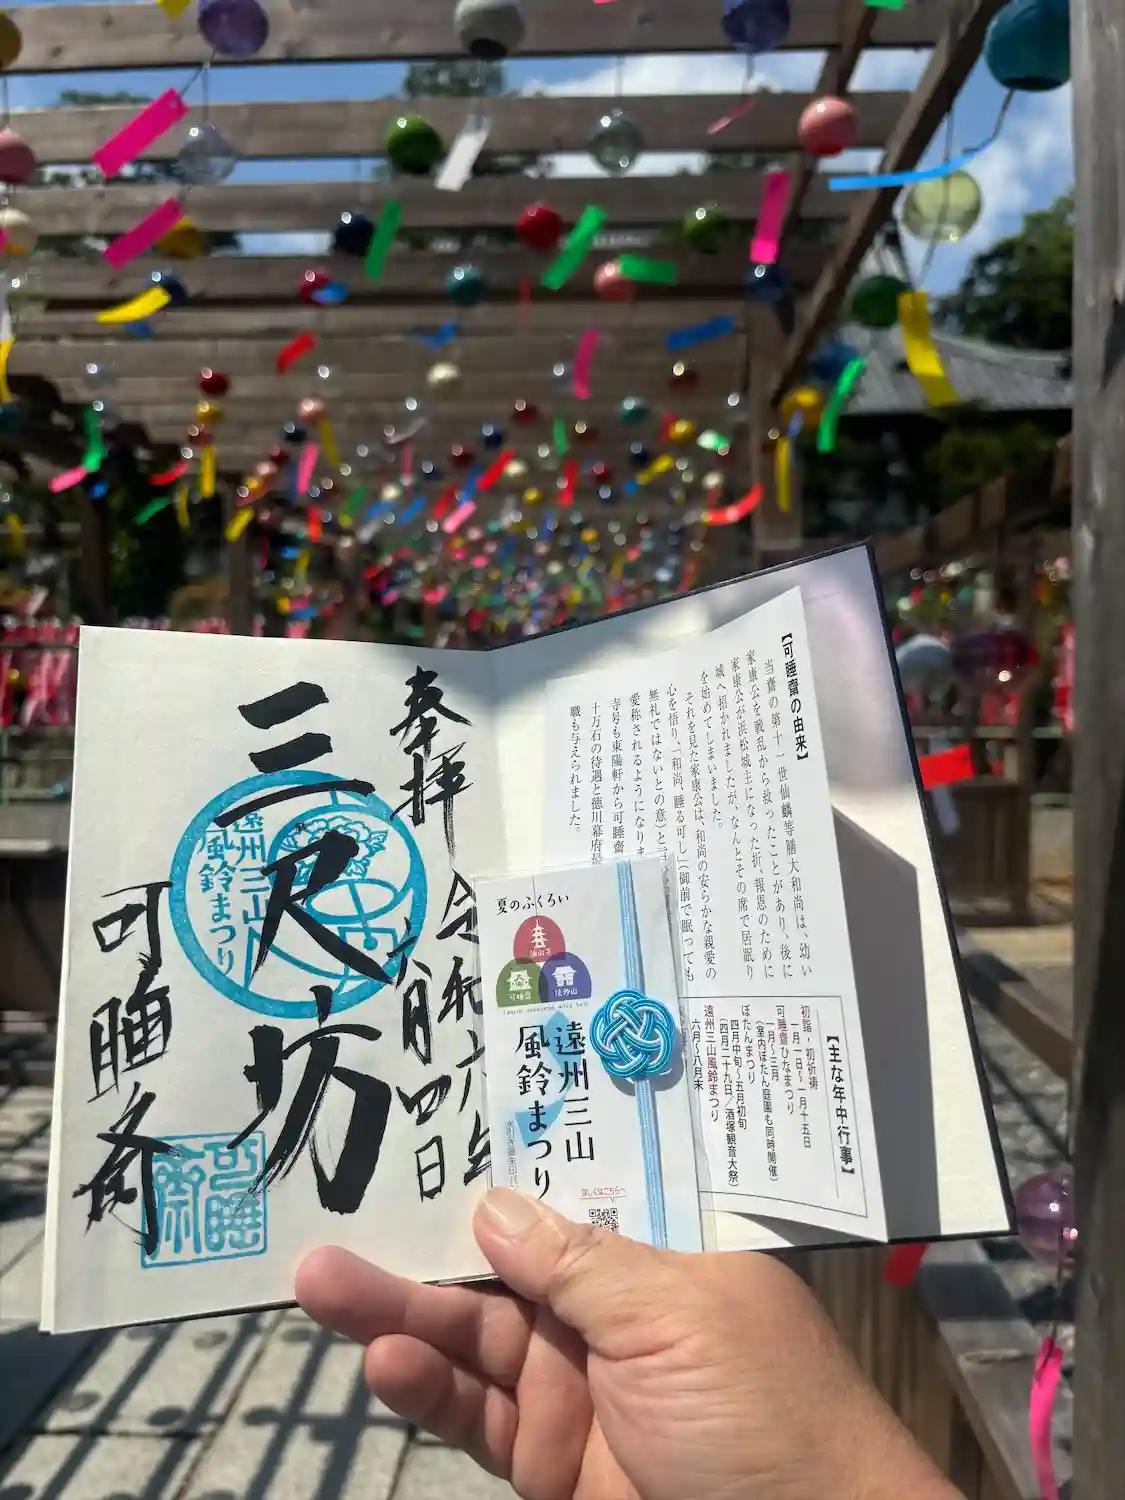 奉拝
令和六年
六月四日
三尺坊
可睡斎
遠州三山
風鈴まつり
【可睡齋の由来】
当齋の第十一世仙麟等膳大和尚は、幼い
家康公を戦乱から救ったことがあり、後に
家康公が浜松城主になった折、報恩のために
城へ招かれましたが、なんとその席で居眠り
を始めてしまいました。
それを見た家康公は、和尚の安らかな親愛の
心を悟り、「和尚、睡る可し」(御前で眠っても
無礼ではないとの意)と
愛称されるようになりま
寺号も東陽軒から可睡齋
十万石の待遇と徳川幕府最
職も与えられました。
【主な年中行事】
初詣・初祈祷
一月一日～一月十五日
可睡齋ひなまつり
一月～三月
(室内ぼたん庭園も同時開催)
ぼたんまつり
四月中旬～五月初旬
(四月二十九日/酒塚観音大祭)
遠州三山風鈴まつり
六月～八月末
夏のふくろい
油山寺
可睡齋
法多山
遠州三山
風鈴まつり
詳しくはこちらへ